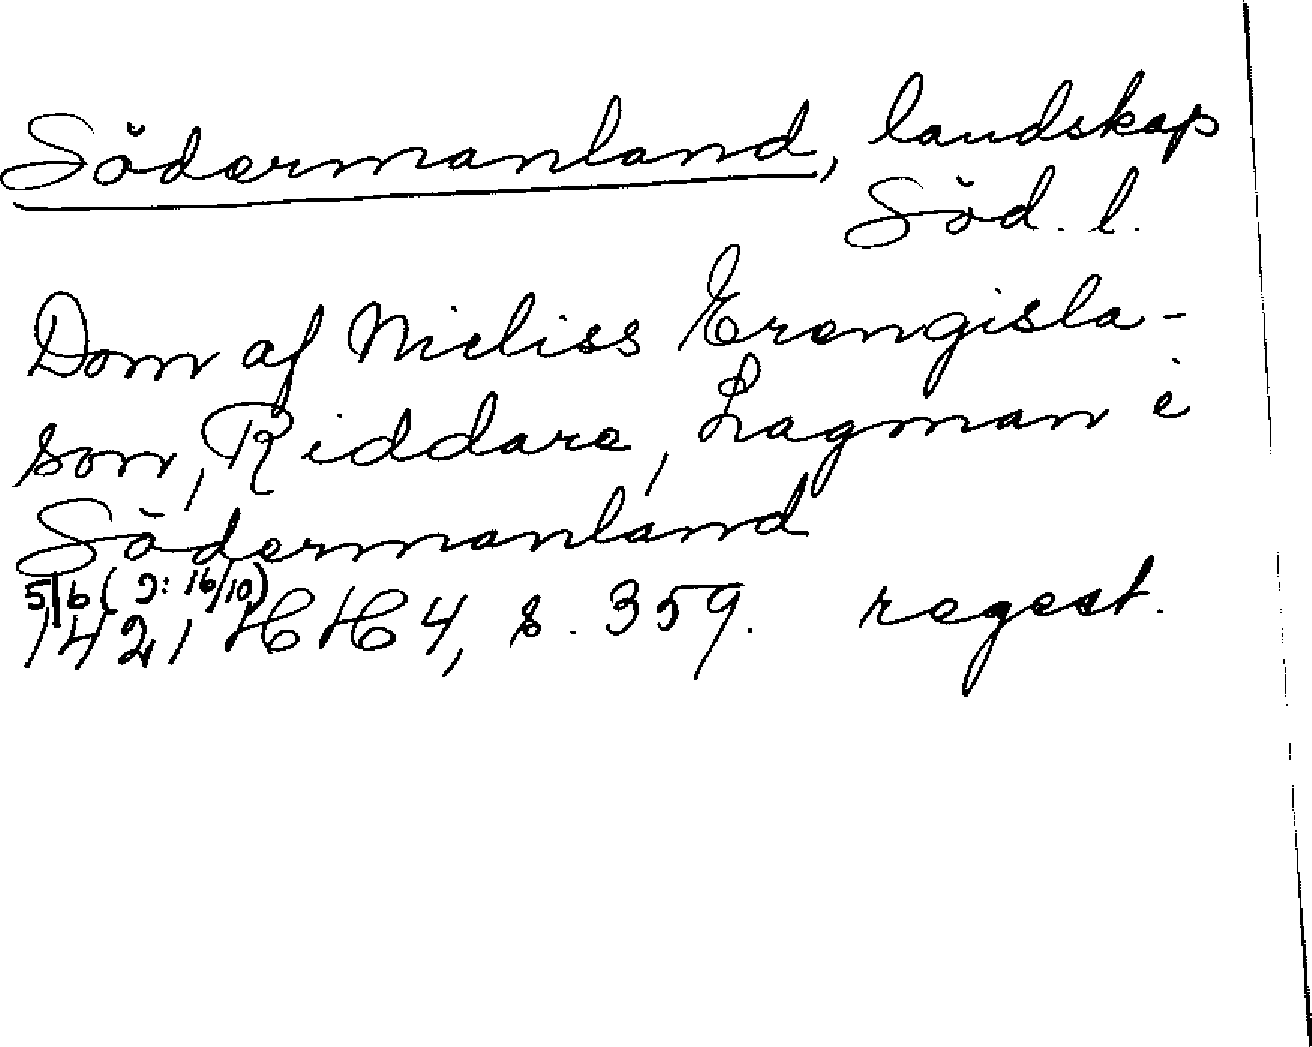 Södermanland, landskap
Söd. l.
Dom af Nieliss Erengisla-
son, Riddare, Lagman i
Södermanland
5/6 (ɔ: 16/10)
1421 HH 4, s. 359. regest.